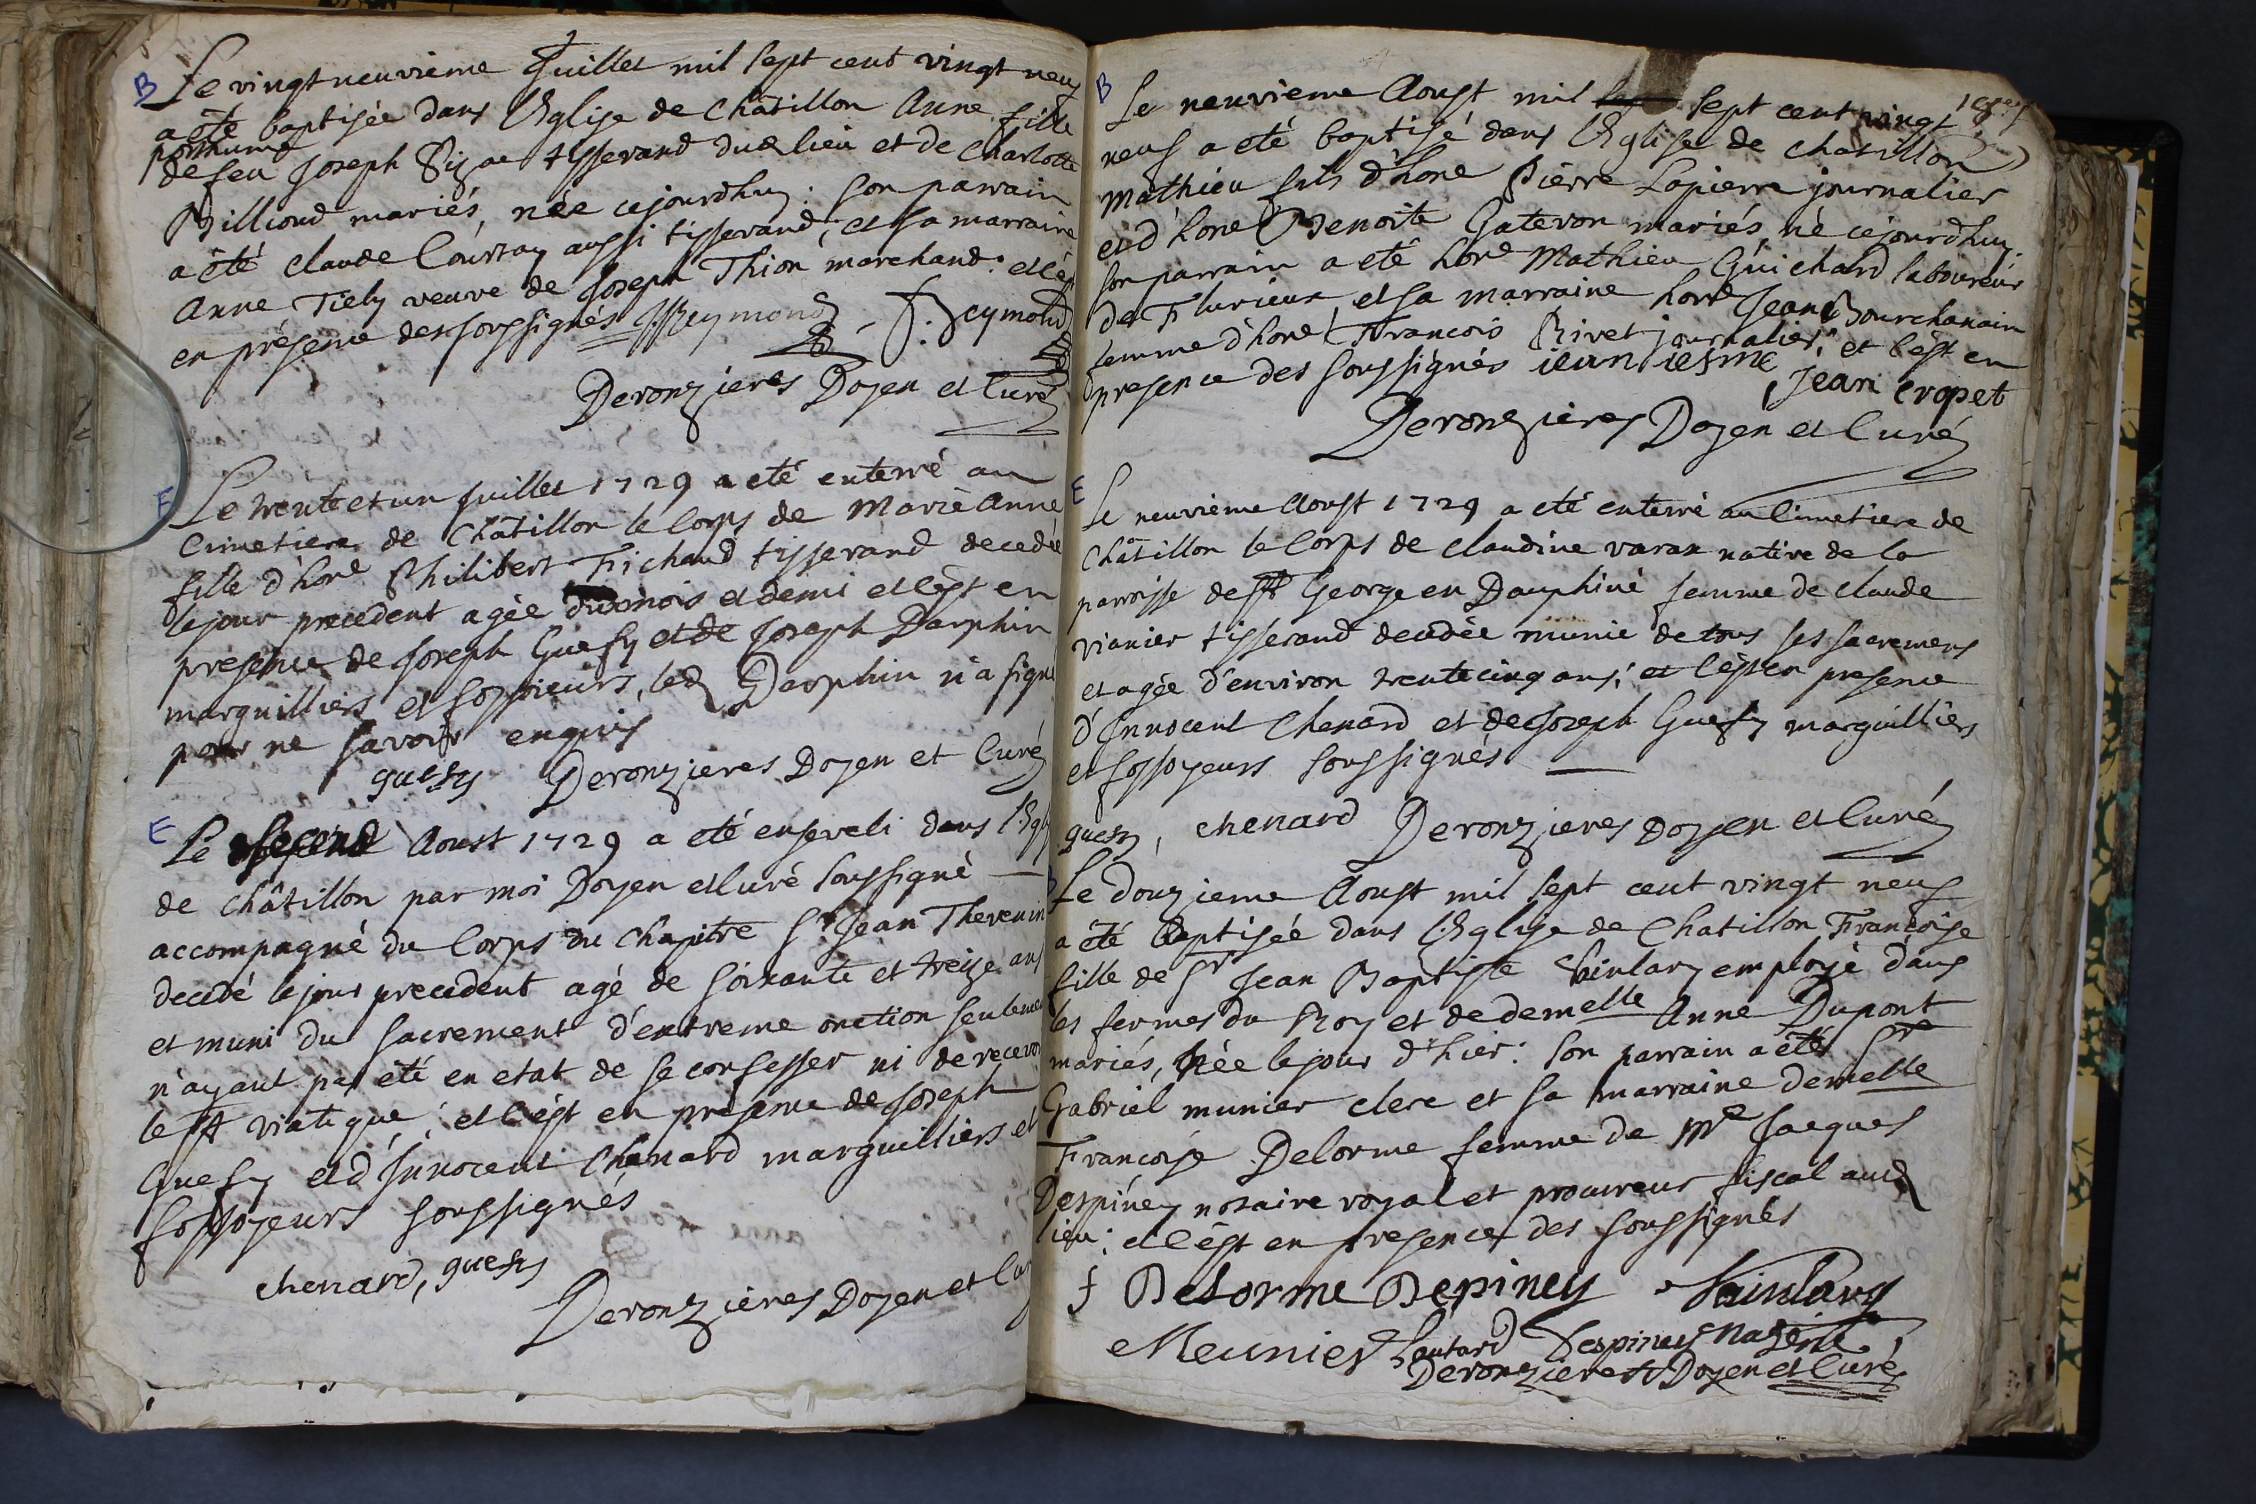 B Le vingt neuvieme Juillet mil sept cent vingt neuf
a été baptisée dans l'Eglise de Châtillon Anne fille
posthume
de feu Joseph tisserand dud lieu et de Charlotte
Billioud mariés, née cejourdhuy: son parrain
a été Claude Courtay aussi tisserand, et sa marraine
Anne Tiely veuve de Joseph Thion marchand: et c'est
en présence des soussignés JReymond f. Reymond
Deronzieres Doyen et Curé
E Le trente et un Juillet 1729 a eté enterré au
Cimetiere de Châtillon le Corps de Marie Anne
fille d'hone Philibert Fichaud tisserand decedée
le jour precedent agée mois et demi et c'est en
presence de Joseph Guesy et de Joseph Darphin
marguilliers et fossoieurs, led Darphin n'a signé
pour ne savoir enquis
guesy Deronzieres Doyen et Curé
E Le second Aoust 1729 a eté enseveli dans l'Eglise
de Châtillon par moi Doyen et Curé soussigné
accompagné du Corps du Chapitre Sr Jean Thevenin
decedé le jour precedent agé de soixante et treize ans
et muni du sacrement d'extreme onction seulement
n'ayant pas été en etat de se confesser ni de recevoir
le St viatique; et c'est en présence de Joseph
Guesy et d'Innocent Chenard marguilliers et
fossoyeurs soussignés
chenard, guesy
Deronzieres Doyen et Curé
B Le neuvieme Aoust mil sept cent vingt
neuf a eté baptisé dans l'Eglise de Chatillon
Mathieu fils d'hone Pierre Lapierre journalier
et d'hone Benoite Gateron mariés, né cejourdhuy,
son parrain a eté hone Mathieu Guichard laboureur
de Flurieux et sa marraine hone Jeane Bourchanain
femme d'hone Francois Rivet journalier; et c'est en
presence des soussignés jean iesme
Jean cropet
Deronzieres Doyen et Curé
E Le neuvieme Aoust 1729 a eté enterré au Cimetiere de
Châtillon le Corps de Claudine varax native de la
parroisse de St George en Dauphiné femme de Claude
vianier tisserand decedée munie de tous ses sacremens
et agée d'environ trente cinq ans; et c'est en presence
d'Innocent Chenard et de Joseph Guesy marguilliers
et fossoyeurs soussignés
guesy, chenard Deronzieres Doyen et Curé
B Le douzieme Aoust mil sept cent vingt neuf
a été baptisée dans l'Eglise de Chatillon Francoise
fille de Sr Jean Baptiste Sainlary employé dans
les fermes du Roy et de demelle Anne Dupont
mariés, née le jour d'hier: son parrain a été Sre
Gabriel munier clerc et sa marraine demelle
Francoise Delorme femme de Me Jacques
Despiney notaire royal et procureur fiscal aud
lieu; et c'est en presence des soussignés
f Delorme Depiney Sainlary
Meunier Despiney
Deronzieres Doyen et Curé